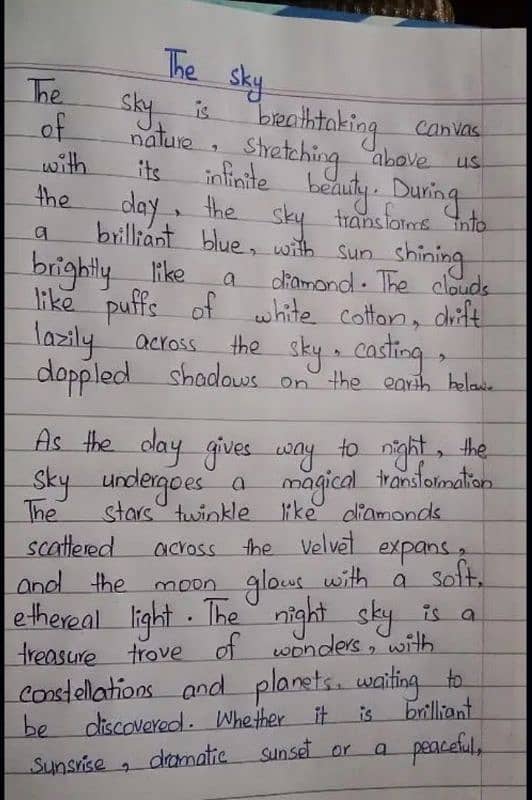 The sky
The sky is breathtaking canvas
of nature, stretching above us
with its infinite beauty. During
the day, the sky transforms into
a brilliant blue, with sun shining
brightly like a diamond. The clouds
like puffs of white cotton, drift
lazily across the sky, casting,
dappled shadows on the earth below.
As the day gives way to night, the
sky undergoes a magical transformation
The stars twinkle like diamonds
scattered across the velvet expans,
and the moon glows with a soft,
ethereal light. The night sky is a
treasure trove of wonders, with
constellations and planets. waiting to
be discovered. Whether it is brilliant
Sunsrise, dramatic sunset or a peaceful,